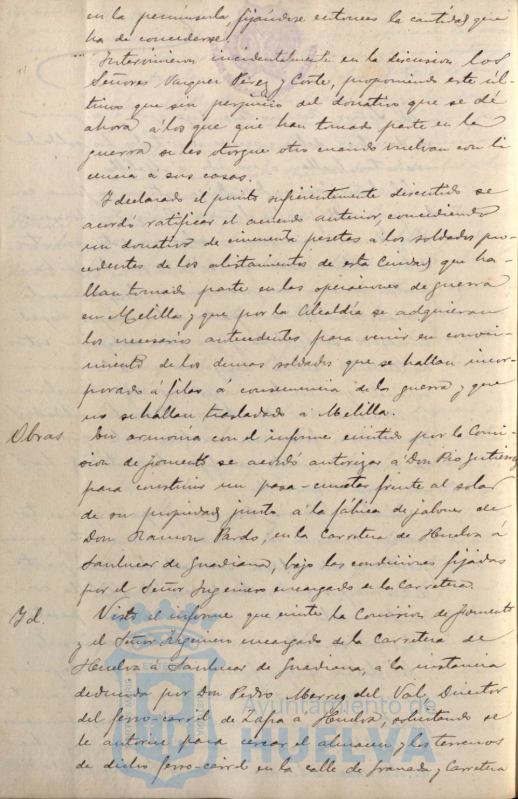 en la península, fijándose entonces la cantidad que
ha de concederse.
Intervinieron incidentalmente en la discusion los
Señores Vazquez Perez y Corte, proponiendo este úl-
timo que sin perjuicio del donativo que se dé
ahora á los que que han tomado parte en la
guerra se les otorgue otro cuando vuelvan con li
cencia á sus casas.
Y declarado el punto suficientemente discutido se
acordó ratificar el acuerdo anterior, concediendo
un donativo de cincuenta pesetas á los soldados pro-
cedentes de los alistamientos de esta Ciudad, que ha-
llan tomado parte en las operaciones de guerra
en Melilla y que por la Alcaldía se adquieran
los necesarios antecedentes para venir en conoci-
miento de los demas soldados que se hallan incor-
porado á filas á consecuencia de la guerra y que
no se hallan trasladado á Melilla.
Obras En armonía con el informe emitido por la Comi-
sion de fomento se acordó autorizar á Don Pio Gutierrez
para construir un pasa-cunetas frente al solar
de su propiedad, junto á la fábrica de jabones de
Don Ramon Pardo, en la Carretera de Huelva á
Sanlucar de Guadiana, bajo las condiciones fijadas
por el Señor Ingeniero encargado de la Carretera.
Id. Visto el informe que emite la Comision de fomento
y el Señor Ingeniero encargado de la Carretera de
Huelva á Sanlucar de Guadiana, á la instancia
deducida por Don Pedro del Val, Director
del ferro-carril de Zafra á Huelva, solicitando se
le autorice para cercar el almacen y los terrenos
de dicho ferro-carril en la calle de Granada y Carretera
Ayuntamiento de
HUELVA